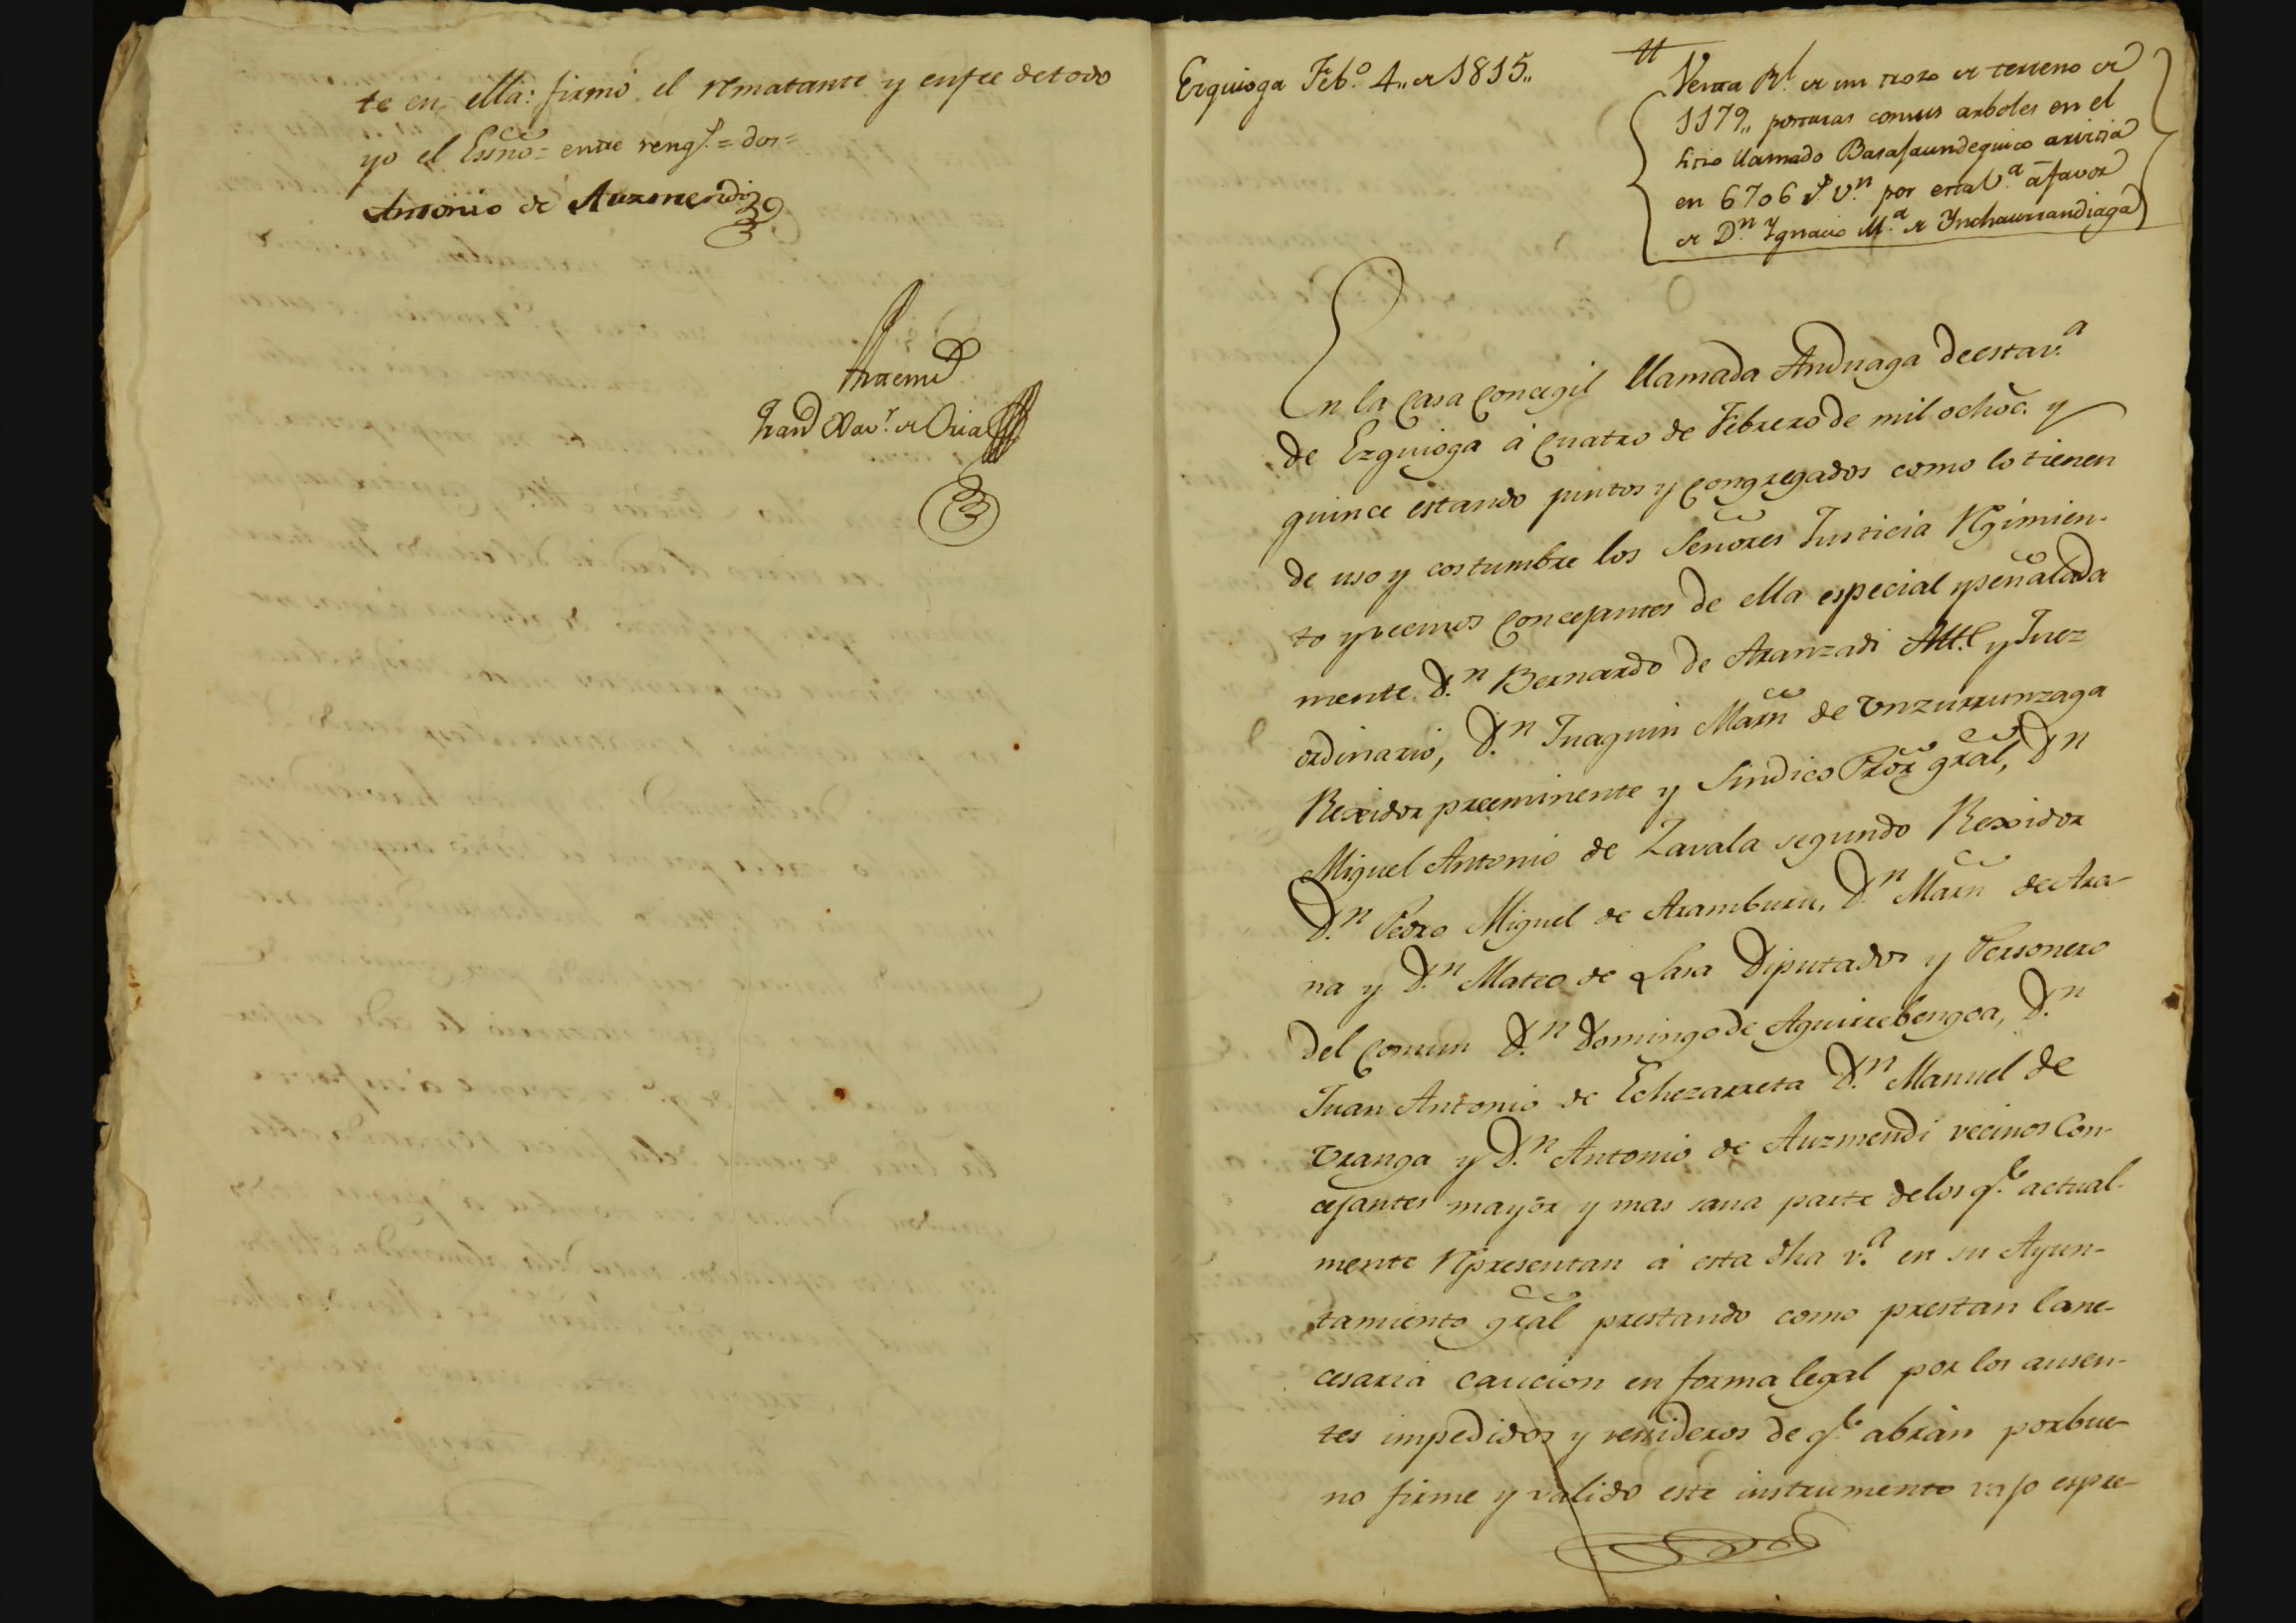 te en ella: firmó el rematante y enfee detodo
yo el Essño = entre rengs. = dos =
Antonio de Auzmendi
Antemi
Franco Xavr. de Oria
Ezquioga Febo. 4,, de 1815,,
Venta Rl. de un trozo de terreno de
1179,, posturas consus arboles en el
sitio llamado Basajaundeguico arivisia
en 6706 rs. vn. por esta va. á favor
de Dn. Ygnacio Ma. de Ynchaurrandiaga
En la Casa Concegil llamada Anduaga deesta va.
de Ezquioga á Quatro de Febrero de mil ochoc. y
quince estando juntos y Congregados como lo tienen
de uso y costumbre los Señores Justicia Rejimien-
to y vecinos Concejantes de ella especial y señalada
mente Dn. Bernardo de Aranzadi Alle. y Juez
ordinario, Dn. Juaquin Marn de Vnzurrunzaga
Rexidor preeminente y Sindico Pror gral, Dn
Miguel Antonio de Zavala segundo Rexidor
Dn. Pedro Miguel de Aramburu, Dn. Marn de Ara-
na y Dn. Mateo de Lasa Diputados y Personero
del Comun Dn. Domingo de Aguirrebengoa, Dn.
Juan Antonio de Echezarreta Dn. Manuel de
Vranga y Dn. Antonio de Auzmendi vecinos Con-
cejantes mayor y mas sana parte delos qe. actual-
mente Representan á esta dha va. en su Ayun-
tamiento gral prestando como prestan lane-
cesaria caucion en forma legal por los ausen-
tes impedidos y venideros de qe. abrán porbue-
no firme y valido este instrumento vajo espre-